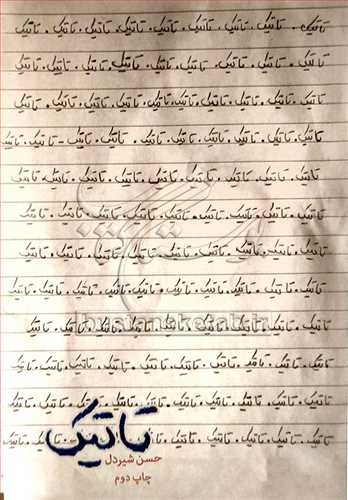 تاتیک . تاتیک . تاتیک . تاتیک . تاتیک . تاتیک . تاتیک . تاتیک . تاتیک
تاتیک . تاتیک . تاتیک . تاتیک . تاتیک . تاتیک . تاتیک . تاتیک . تاتیک
تاتیک . تاتیک . تاتیک . تاتیک . تاتیک . تاتیک . تاتیک . تاتیک . تاتیک . تاتیک
تاتیک . تاتیک . تاتیک . تاتیک . تاتیک . تاتیک . تاتیک . تاتیک . تاتیک . تاتیک
تاتیک . تاتیک . تاتیک . تاتیک . تاتیک . تاتیک . تاتیک . تاتیک . تاتیک
تاتیک . تاتیک . تاتیک . تاتیک . تاتیک . تاتیک . تاتیک . تاتیک . تاتیک
تاتیک . تاتیک . تاتیک . تاتیک . تاتیک . تاتیک . تاتیک . تاتیک . تاتیک
تاتیک . تاتیک . تاتیک . تاتیک . تاتیک . تاتیک . تاتیک . تاتیک . تاتیک . تاتیک
تاتیک . تاتیک . تاتیک . تاتیک . تاتیک . تاتیک . تاتیک . تاتیک . تاتیک
تاتیک . تاتیک . تاتیک . تاتیک . تاتیک . تاتیک . تاتیک . تاتیک . تاتیک . تاتیک
تاتیک . تاتیک . تاتیک . تاتیک . تاتیک . تاتیک . تاتیک . تاتیک . تاتیک . تاتیک
تاتیک . تاتیک . تاتیک . تاتیک . تاتیک . تاتیک . تاتیک . تاتیک . تاتیک
تاتیک
حسن شیردل
چاپ دوم